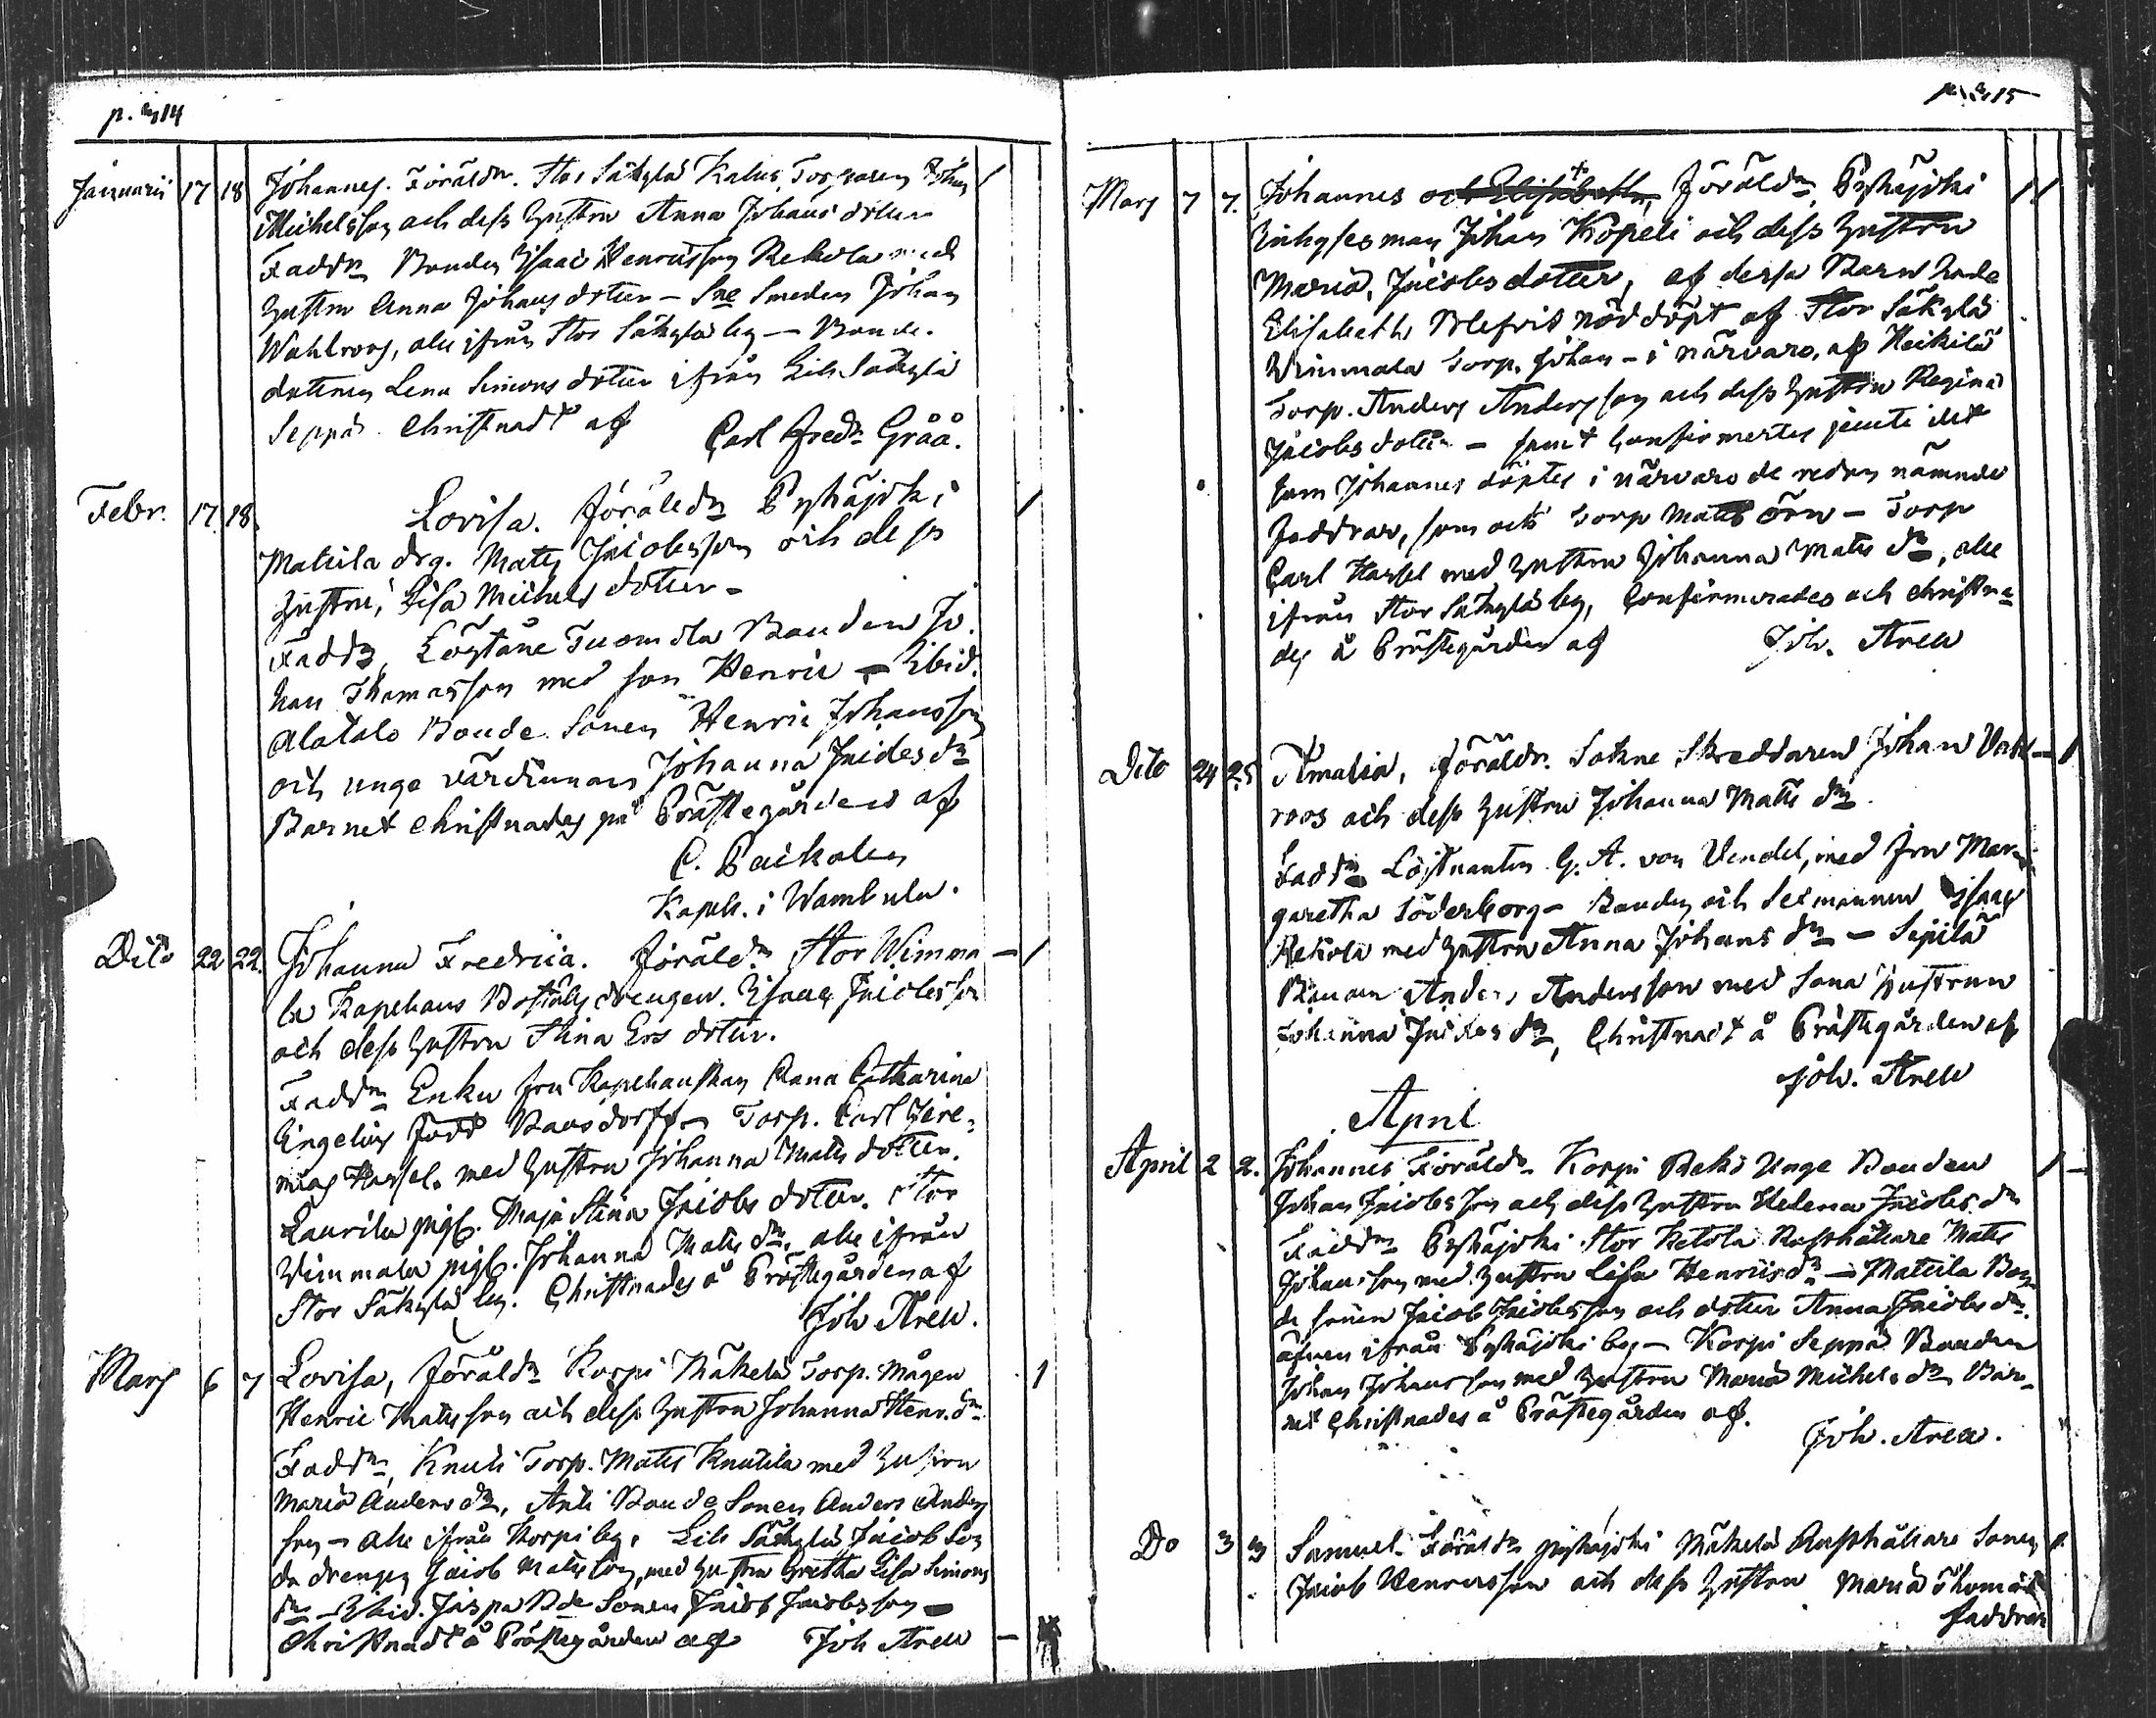 p. 314
Januarii 17 18 Johannes. Föräldr. Stor Säkylä Kalus Torparen Johan
Michelsson och dess hustru Anna Johans dotter
Faddr Bonden Isaac Henricsson Rekola med
hustru Anna Johans dotter – Sne Smeden Johan
Wahlroos, alle ifrån Stor Säkylä by – Bonde.
dottren Lena Simons dotter ifrån Lill Säkylä
Seppä. Christnadt af Carl Fredr Gråå.
Febr. 17 18. Lovisa. Föräldr Pyhäjoki
Mattila drg. Matts Jacobsson och dess
hustru, Lisa Michels dotter –
Faddr, Löytäne Tuomola Bonden Jo
han Thomasson med son Henric – Ibid.
Alatalo Bonde Sonen Henric Johansson
och unge värdinnan Johanna Jacobs dr
Barnet Christnades på Prästegården af
C. Packalen
Kapell. i Wambula.
Dito 22 22. Johanna Fredrica. Föräldr Stor Wimma – 1
la Kapellans Boställs drengen. Isaac Jacobsson
och dess hustru Stina Ers dotter.
Faddr Enke fru Kapellanskan Anna Catharina
Engelius född Ransdorff – Torp. Carl Jere-
mias Hassel. med hustru Johanna Matts dotter.
Laurila pig. Maja Stina Jacobs dotter. Stor
Wimmala pig. Johanna Matts dr, alle ifrån
Stor Säkylä by. Christnades å Prästegården af
Joh Aren.
Mars 6 7 Lovisa, Föräldr Korpi Mäkelä Torp. Mågen 1
Henric Matsson och dess hustru Johanna Henr. dr
Faddr, Knuti Torp. Matts Knutila med hustru
Maria Anders dr, Anti Bonde Sonen Anders Anders
son – alle ifrån Korpi by, Lill Säkylä Jacob
da drengen Jacob Matsson, med hustru Gretha Lisa Simons
dr – Ibid. Jaspa Bde Sonen Jacob Jacobsson –
Christnadt å Prästegården af Joh Aren
p. 315
Mars 7 7. Johannes och Elisabeth, Föräldr, Pyhäjoki 1 1
Inhyses man Johan Köpeli och dess hustru
Maria, Jacobs dotter, af dessa Barn hade
Elisabeth blefvit nöddöpt af Stor Säkylä
Wimmala Torp. Johan – i närvaro, af Heikilä
Torp. Anders Andersson och dess hustru Regina
Jacobs dotter – samt Confirmertes jemte det
som Johannes döptes i närvaro de redan nämnde
Faddrar, som ock Torp Matts Örn – Torp
Carl Hassel med hustru Johanna Matts dr, alle
ifrån Stor Säkylä by, Confirmerades och Christna-
des å Prästegården af Joh. Aren
Dito 24 25 Amalia, Föräldr. Sokne Skreddaren Johan Wahl – 1
roos och dess hustru Johanna Matts dr.
Faddr Löjtnanten G. A. von Vendel, med fru Mar-
garetha Söderborg – Bonden och Sexmannen Isaac
Rekola med hustru Anna Johans dr – Sipilä
Bonden Anders Andersson med Sona hustrun
Johanna Jacobs dr, Christnadt å Prästegården af
Joh. Aren
April
April 2 2. Johannes Föräldr Korpi Rekö Unge Bonden 1 –
Johan Jacobsson och dess hustru Helena Jacobs dr
Faddr Pyhäjoki Stor Ketola Rusthållare Matts
Johansson med hustru Lisa Henrics dr – Mattila Bon-
de sonen Jacob Jacobsson och dotter Anna Jacobs dr.
äfven ifrån Pyhäjoki by – Korpi Seppä Bonden
Johan Johansson med hustru Maria Michels dr Bar-
net Christnades å Prästegården af.
Joh. Aren.
Do 3 3 Samuel. Föräldr pyhäjoki Mäkelä Rusthållare Sonen
Jacob Henricsson och dess hustru Maria Thomas
faddrar